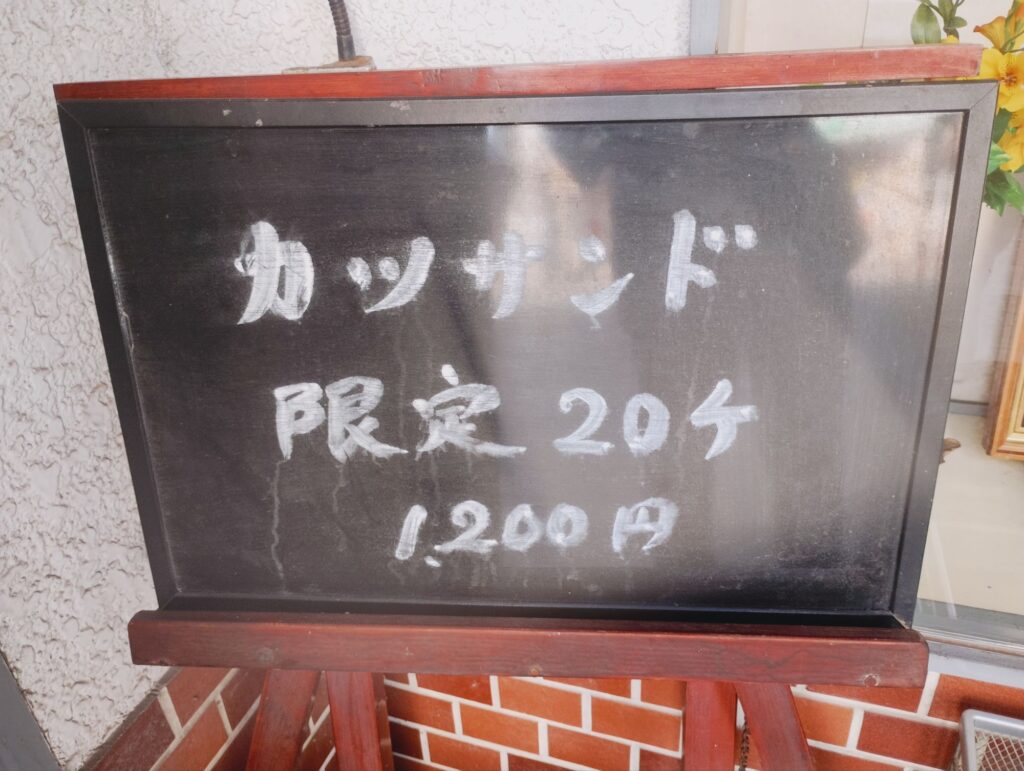 カツサンド
限定20ケ
1,200円